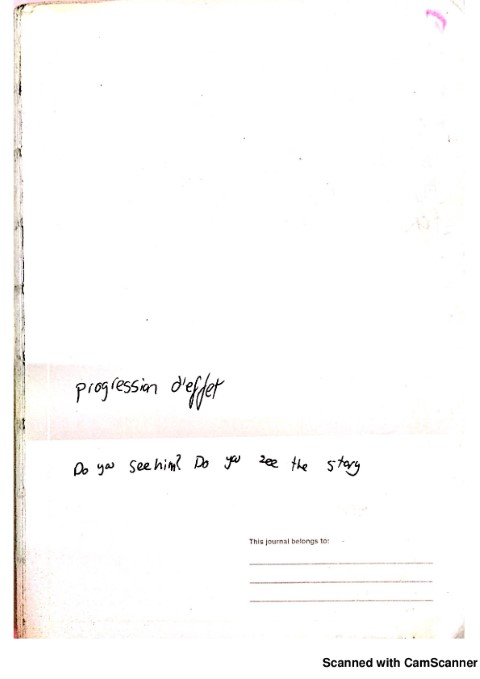 progression d'effet
Do you see him? Do you see the story
This journal belongs to:
Scanned with CamScanner